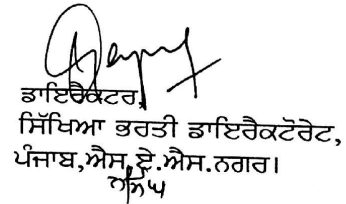 ਡਾਇਰੈਕਟਰ,
ਸਿੱਖਿਆ ਭਰਤੀ ਡਾਇਰੈਕਟੋਰੇਟ,
ਪੰਜਾਬ,ਐਸ.ਏ.ਐਸ.ਨਗਰ।